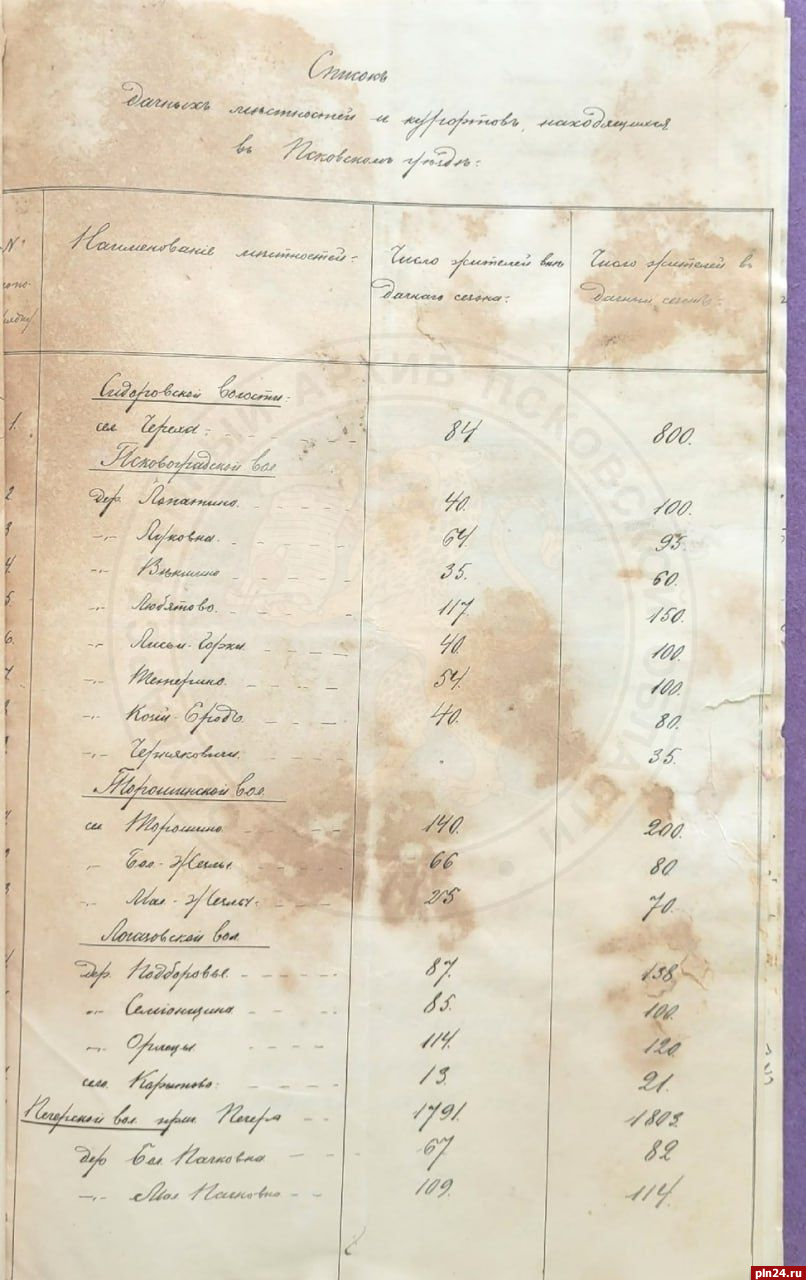 Списокъ
дачныхъ мѣстностей и курортовъ, находящихся
въ Псковскомъ уѣздѣ:
№ по порядку
Наименованіе мѣстностей:
Число жителей внѣ дачнаго сезона:
Число жителей въ дачный сезонъ:
Сидоровской волости:
1. сел. Череха: 84 800.
Псковоградской вол.
2 дер. Лопатино. 40. 100.
3 -„- Луковка. 64. 95.
4. -„- 35. 60.
5. -„- Любятово. 117. 150.
6. -„- Лисьи-Горки 40. 100.
-„- Тетерино. 54. 100.
-„- -Бродъ. 40. 80.
-„- Черняковичи. 35.
Торошинской вол.
сел Торошино 140. 200.
„ Бол-Жеглы 66 80
„ Мал-Жеглы: 25 70.
Логазовской вол.
дер. Подборовье. 87. 138
„ Семіонщина 85. 100.
-„- Орлецы 114. 120
село. Карыново: 13. 21.
Печерской вол. Печера 1791. 1803.
дер Бол. Пачковка 67 82
-„- Мал Пачковка 109. 114.
АРХИВ ПСКОВСКОЙ ОБЛАСТИ
pln24.ru